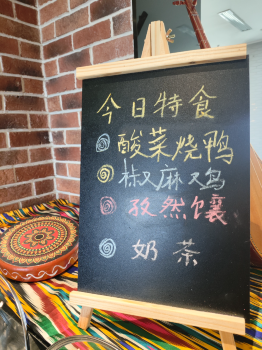 今日特食
酸菜烧鸭
椒麻鸡
孜然馕
奶茶